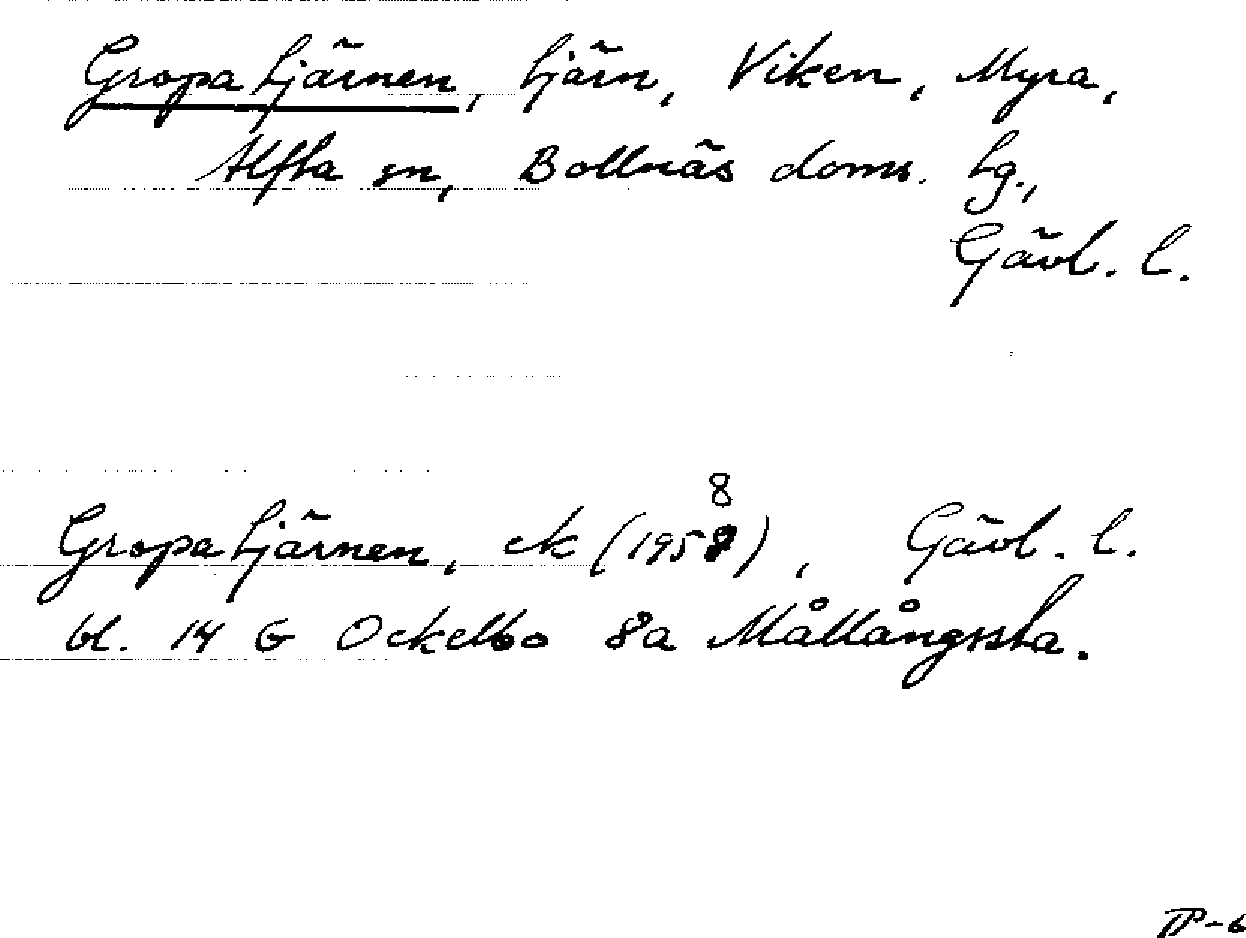 Gropatjärnen, tjärn, Viken, Myra,
Alfta sn, Bollnäs doms. tg.,
Gävl. l.
8
Gropatjärnen, ek (1958), Gävl. l.
bl. 14 G Ockelbo 8a Mållångssta.